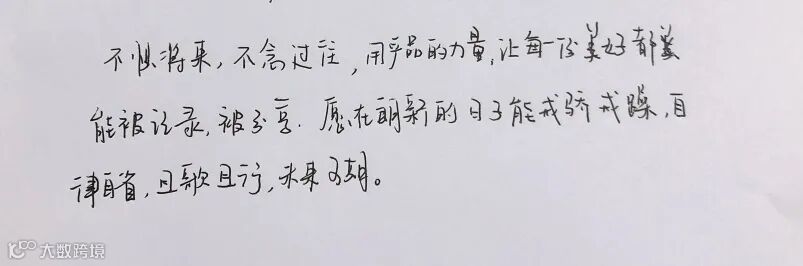 不惧将来，不念过往，用产品的力量，让每一份美好都美
能被记录，被分享．愿在崭新的日子能戒骄戒躁，自
律自省，且歌且行，未来可期。
大数跨境